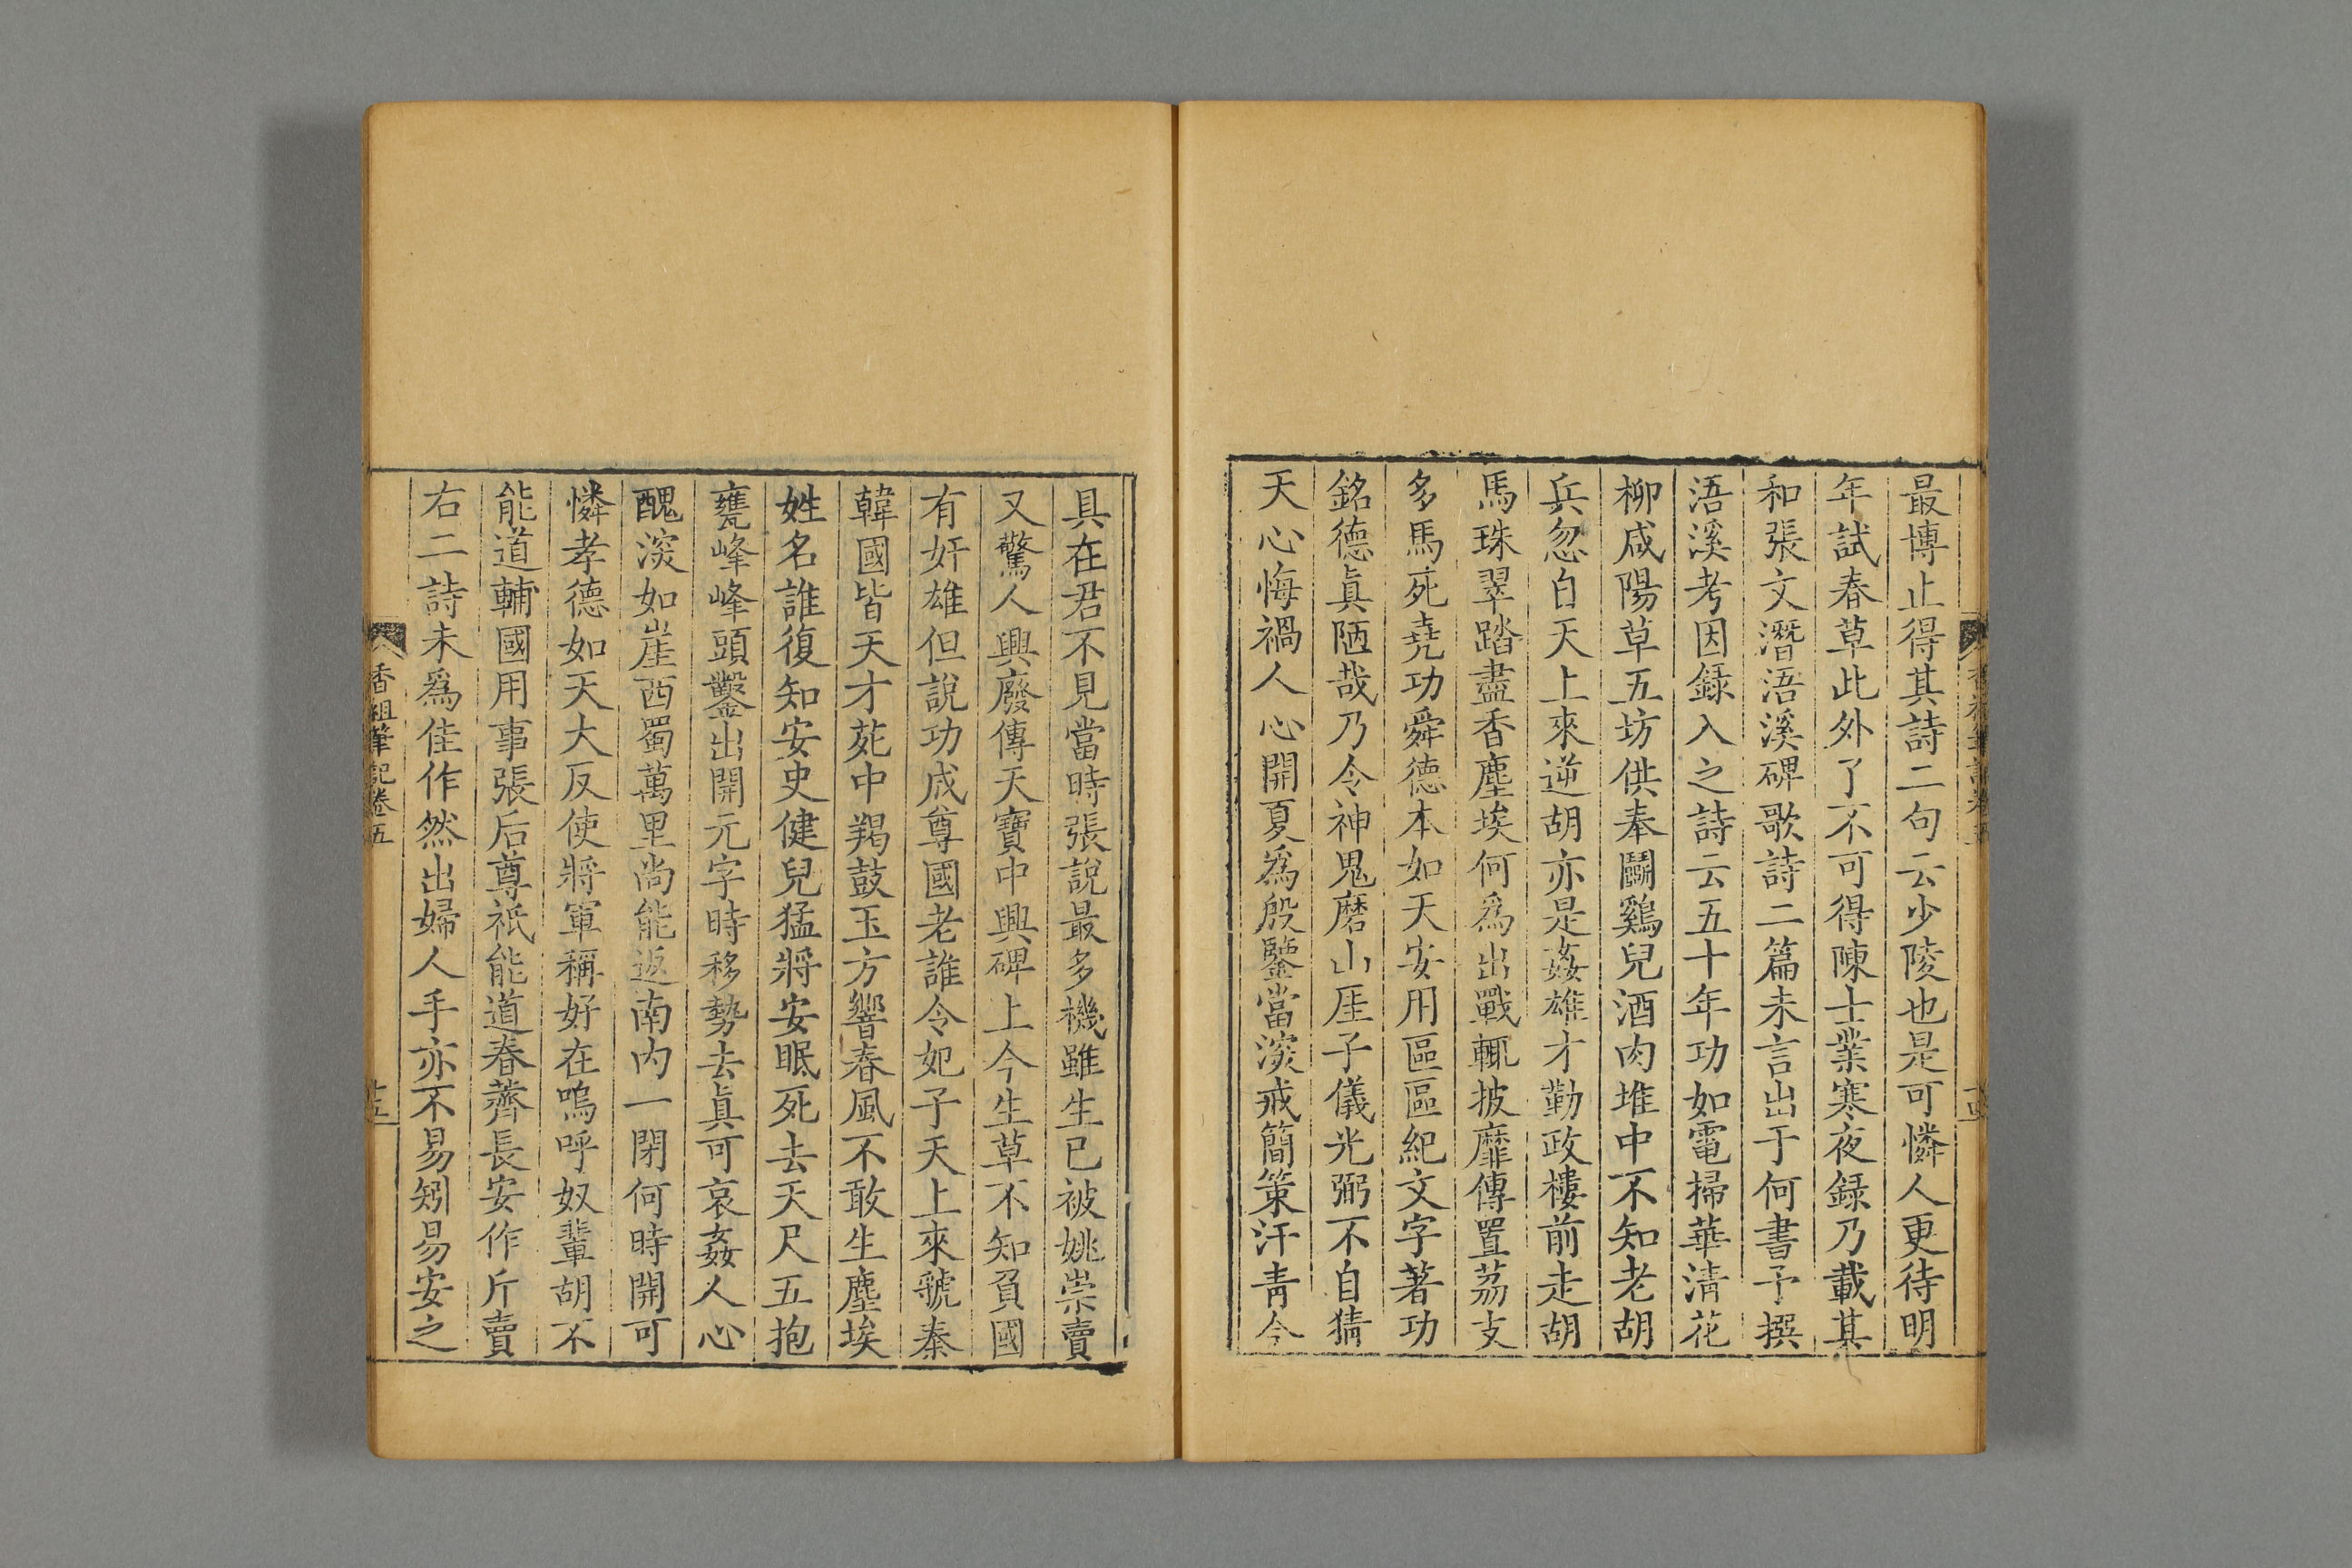 最博止得其詩二句云少陵也是可憐人更待明
年試春草此外了不可得陳士業寒夜録乃載其
和張文潛浯溪碑歌詩二篇未言出于何書予撰
浯溪考因録入之詩云五十年功如電掃華清花
柳咸陽草五坊供奉鬬鷄兒酒肉堆中不知老胡
兵忽自天上來逆胡亦是姦雄才勤政樓前走胡
馬珠翠踏盡香塵埃何爲出戰輒披靡傳置茘支
多馬死堯功舜德本如天安用區區紀文字著功
銘德眞陋哉乃令神鬼磨山厓子儀光弼不自猜
天心悔禍人心開夏爲殷鑒當深戒簡策汗青今
具在君不見當時張說最多機雖生已被姚崇賣
又驚人興廢傳天寶中興碑上今生草不知負國
有奸雄但說功成尊國老誰令妃子天上來虢秦
韓國皆天才苑中羯鼓玉方響春風不敢生塵埃
姓名誰復知安史健兒猛將安眠死去天尺五抱
甕峰峰頭鑿出開元字時移勢去眞可哀姦人心
醜深如崖西蜀萬里尚能返南内一閉何時開可
憐孝德如天大反使將軍稱好在嗚呼奴輩胡不
能道輔國用事張后尊祇能道春薺長安作斤賣
右二詩未爲佳作然出婦人手亦不易矧易安之
香祖筆記卷五
十五